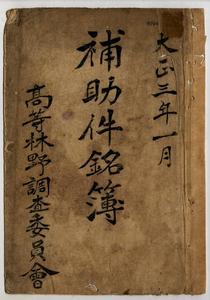 大正三年一月
補助件銘簿
高等林野調査委員會